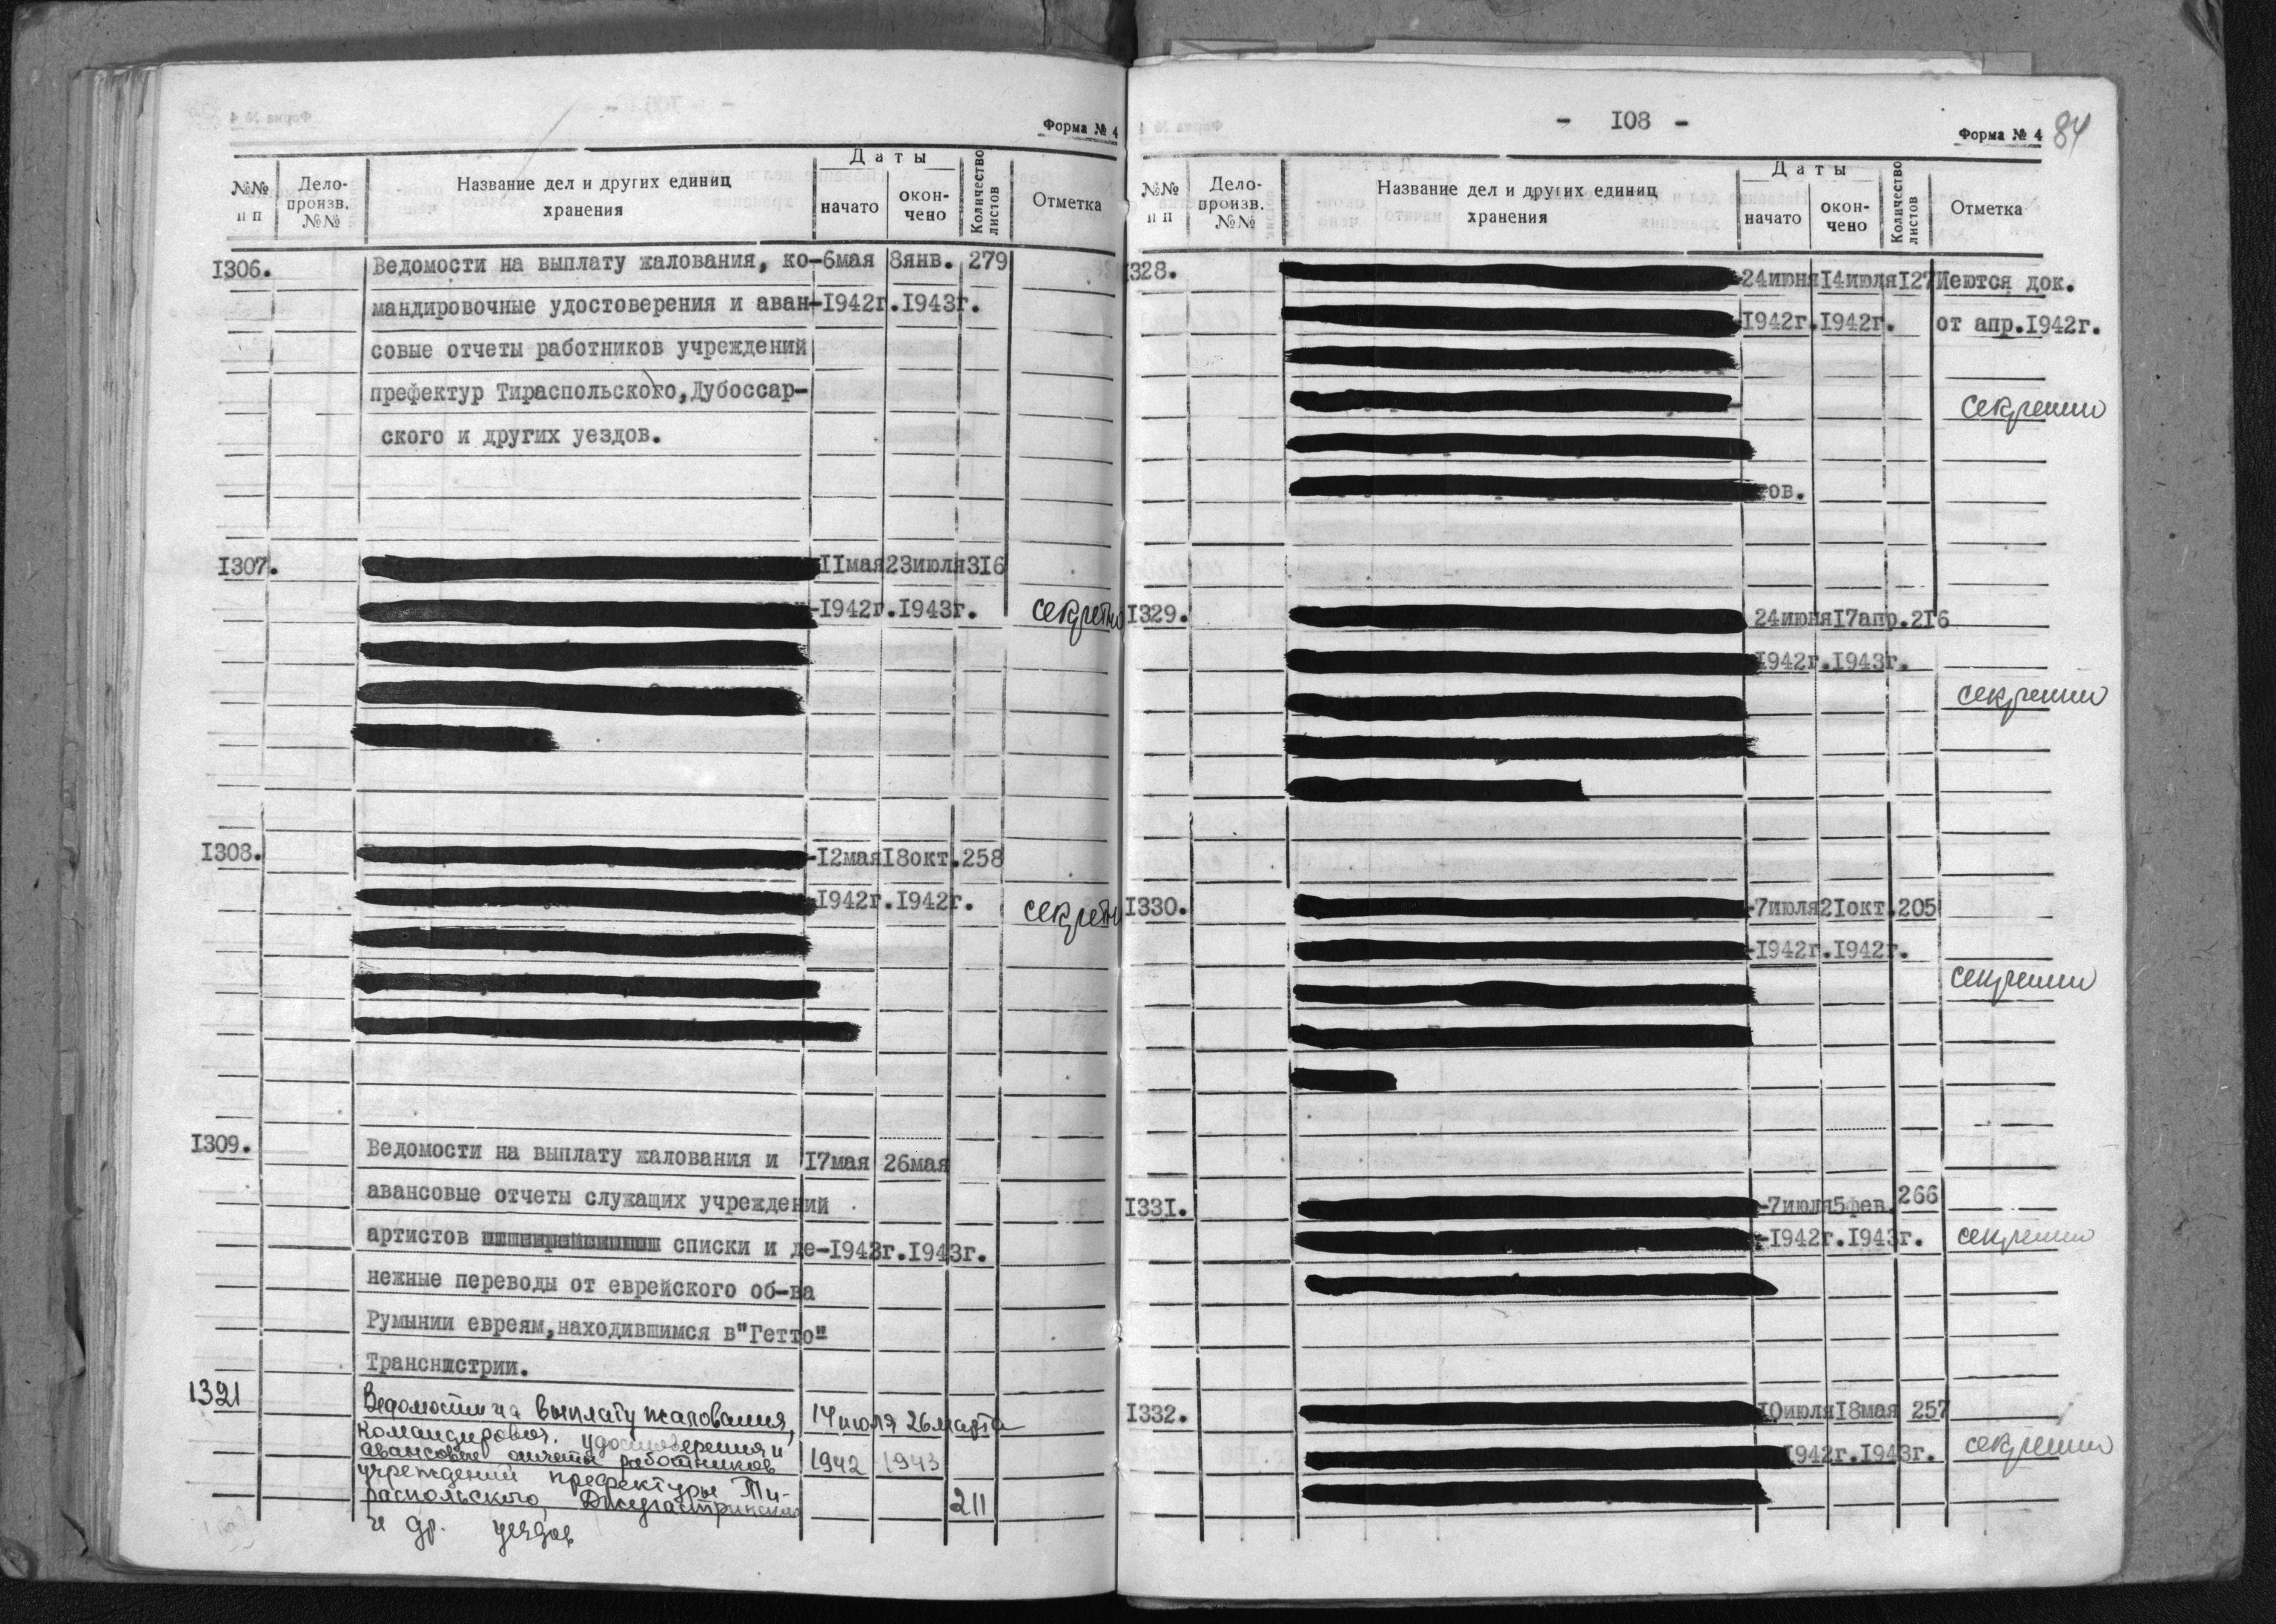 Форма № 4
№№ п п
Дело-произв. №№
Название дел и других единиц хранения
Даты
начато
окон-чено
Количество листов
Отметка
I306.
Ведомости на выплату жалования, ко- 6мая 8янв. 279
мандировочные удостоверения и аван- I942г. I943г.
совые отчеты работников учреждений
префектур Тираспольского, Дубоссар-
ского и других уездов.
I307. IIмая 23июля 3I6
I942г. I943г. секретно
I308. I2мая I8окт. 258
I942г. I942г. секретно
I309. Ведомости на выплату жалования и I7мая 26мая
авансовые отчеты служащих учреждений
артистов списки и де- I942г. I943г.
нежные переводы от еврейского об-ва
Румынии евреям, находившимся в "Гетто"
Транснистрии.
1321 Ведомости на выплату жалования, 14 июля 26 марта
командировоч. удостоверения и
авансовые отчеты работников 1942 1943
учреждений префектуры Ти-
распольского, 211
и др. уездов
- I08 -
Форма № 4
84
№№ п п
Дело-произв. №№
Название дел и других единиц хранения
Даты
начато
окон-чено
Количество листов
Отметка
I328. 24июня I4июля I27 Меются док.
I942г. I942г. от апр. I942г.
секретно
ов.
I329. 24июня I7апр. 2I6
I942г. I943г.
секретно
I330. 7июля 2Iокт. 205
I942г. I942г.
секретно
I33I. 7июля 5фев. 266
I942г. I943г. секретно
I332. I0июля I8мая 257
I942г. I943г. секретно